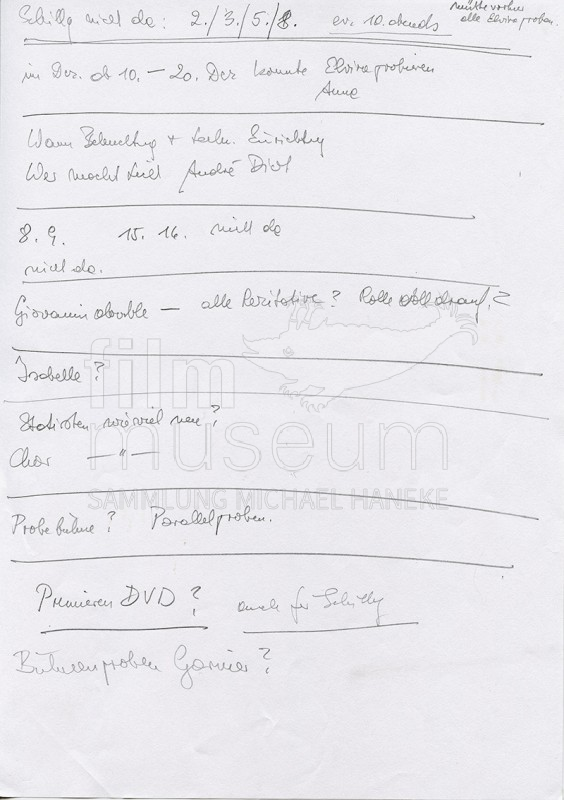 Schilly nicht da: 2./3./5./8. ev. 10. abends müßte vorher
alle Elvira proben.
im Dez. ab 10. – 20. Dez könnte Elvira probieren
Anna
Wann Beleuchtung + techn. Einrichtung
Wer macht Licht André Diot
8. 9. 15. 16. nicht da
nicht da.
Giovanni double — alle Rezitative? Rolle drauf?
Isabelle?
Statisten wieviel neu?
Chor —"—
Probebühne? Parallelproben.
Premieren DVD? auch für Schilly
Bühnenproben Garnier?
film
museum
SAMMLUNG MICHAEL HANEKE